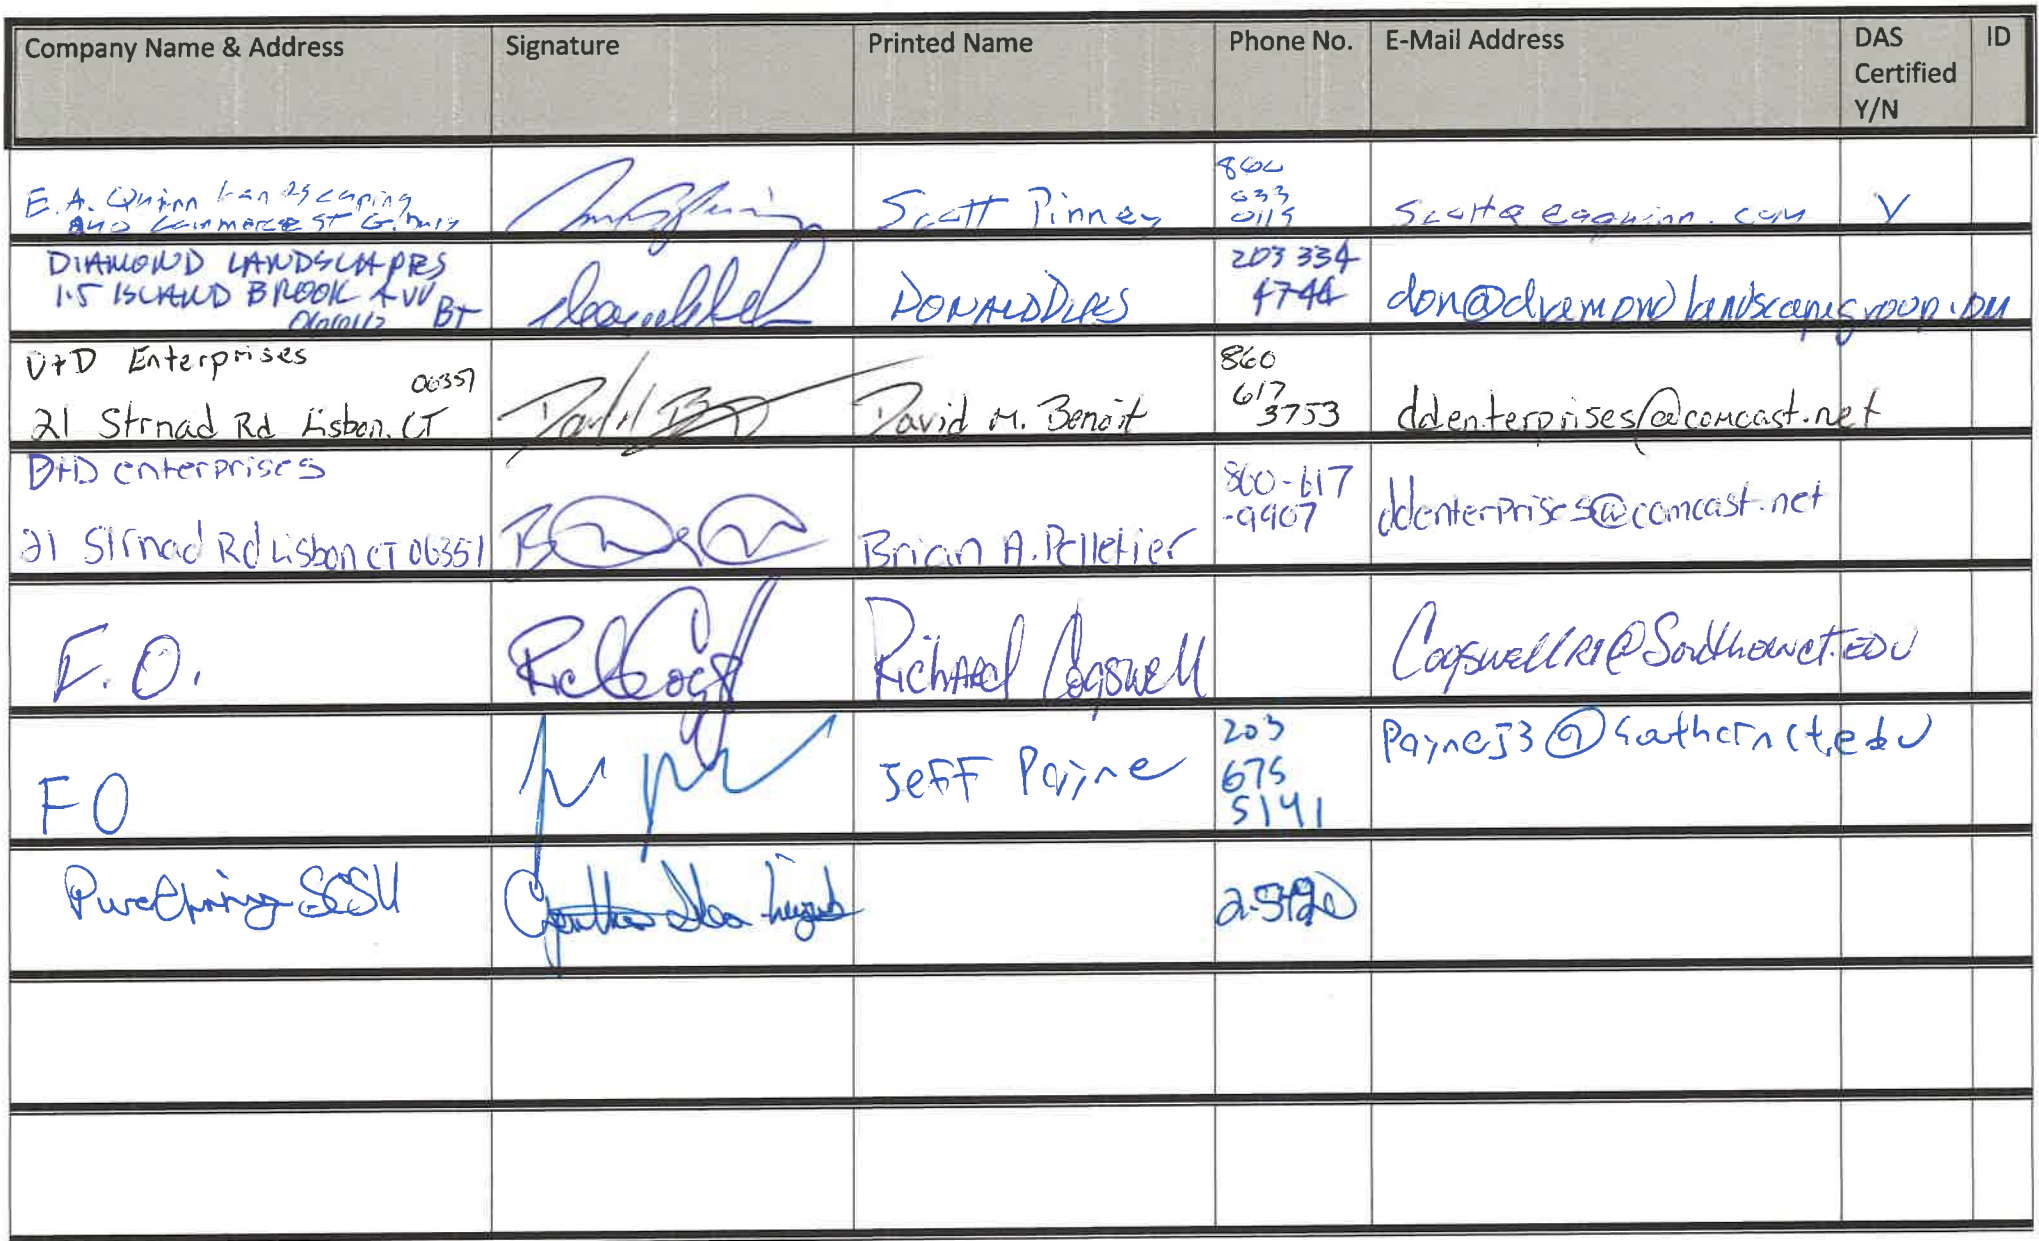 Company Name & Address Signature Printed Name Phone No. E-Mail Address DAS Certified Y/N ID
E.A. Quinn Landscaping
Commerce ST
Scott Pinney
860
633
0119
Scott@eaquinn.com
Y
DIAMOND LANDSCAPES
ISLAND BROOK AVV
BT
DONALD
203 334
4744
D+D Enterprises
06351
21 Strnad Rd Lisbon, CT
David M. Benoit
860
617
3753
ddenterprises@comcast.net
D+D enterprises
21 Strnad Rd Lisbon CT 06351
Brian A. Pelletier
860-617
-9907
ddenterprises@comcast.net
F.O.
Richard Cogswell
CogswellR1@Southernct.EDU
FO
Jeff Payne
203
675
5141
PayneJ3@Southernct.edu
SCSU